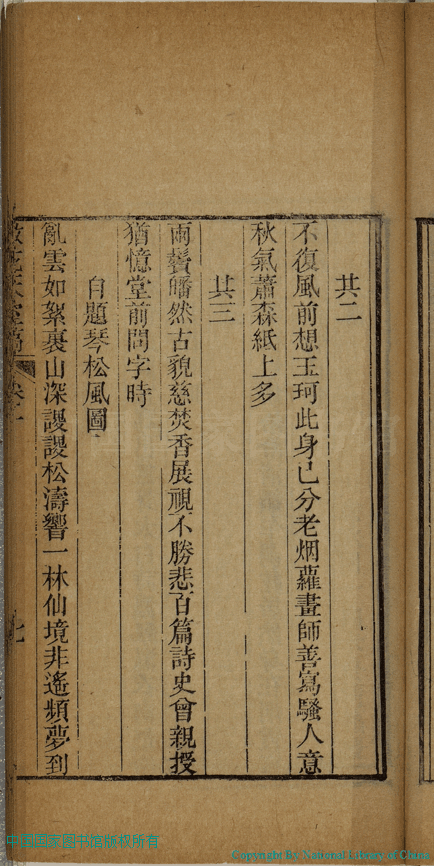 其二
不復風前想玉珂此身已分老烟蘿畫師善寫騷人意
秋氣蕭森紙上多
其三
兩鬢皤然古貌慈焚香展視不勝悲百篇詩史曾親授
猶憶堂前問字時
自題琴松風圖
亂雲如絮裹山深謖謖松濤響一林仙境非遙頻夢到
中国国家图书馆版权所有
Copyright By National Library of China